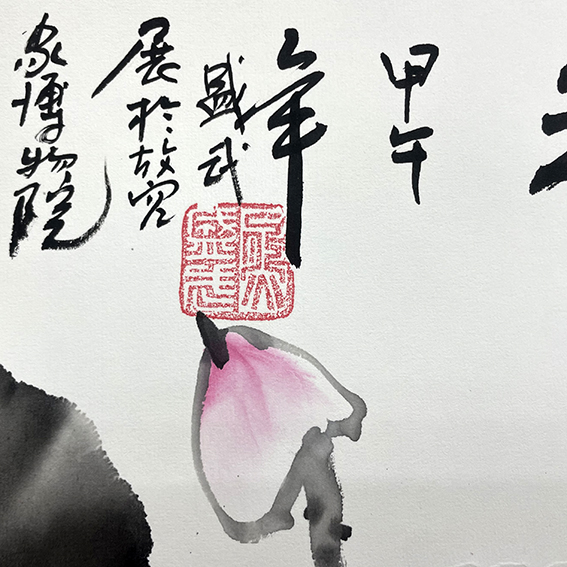 甲午
年
盛武
展於故宮
家博物院